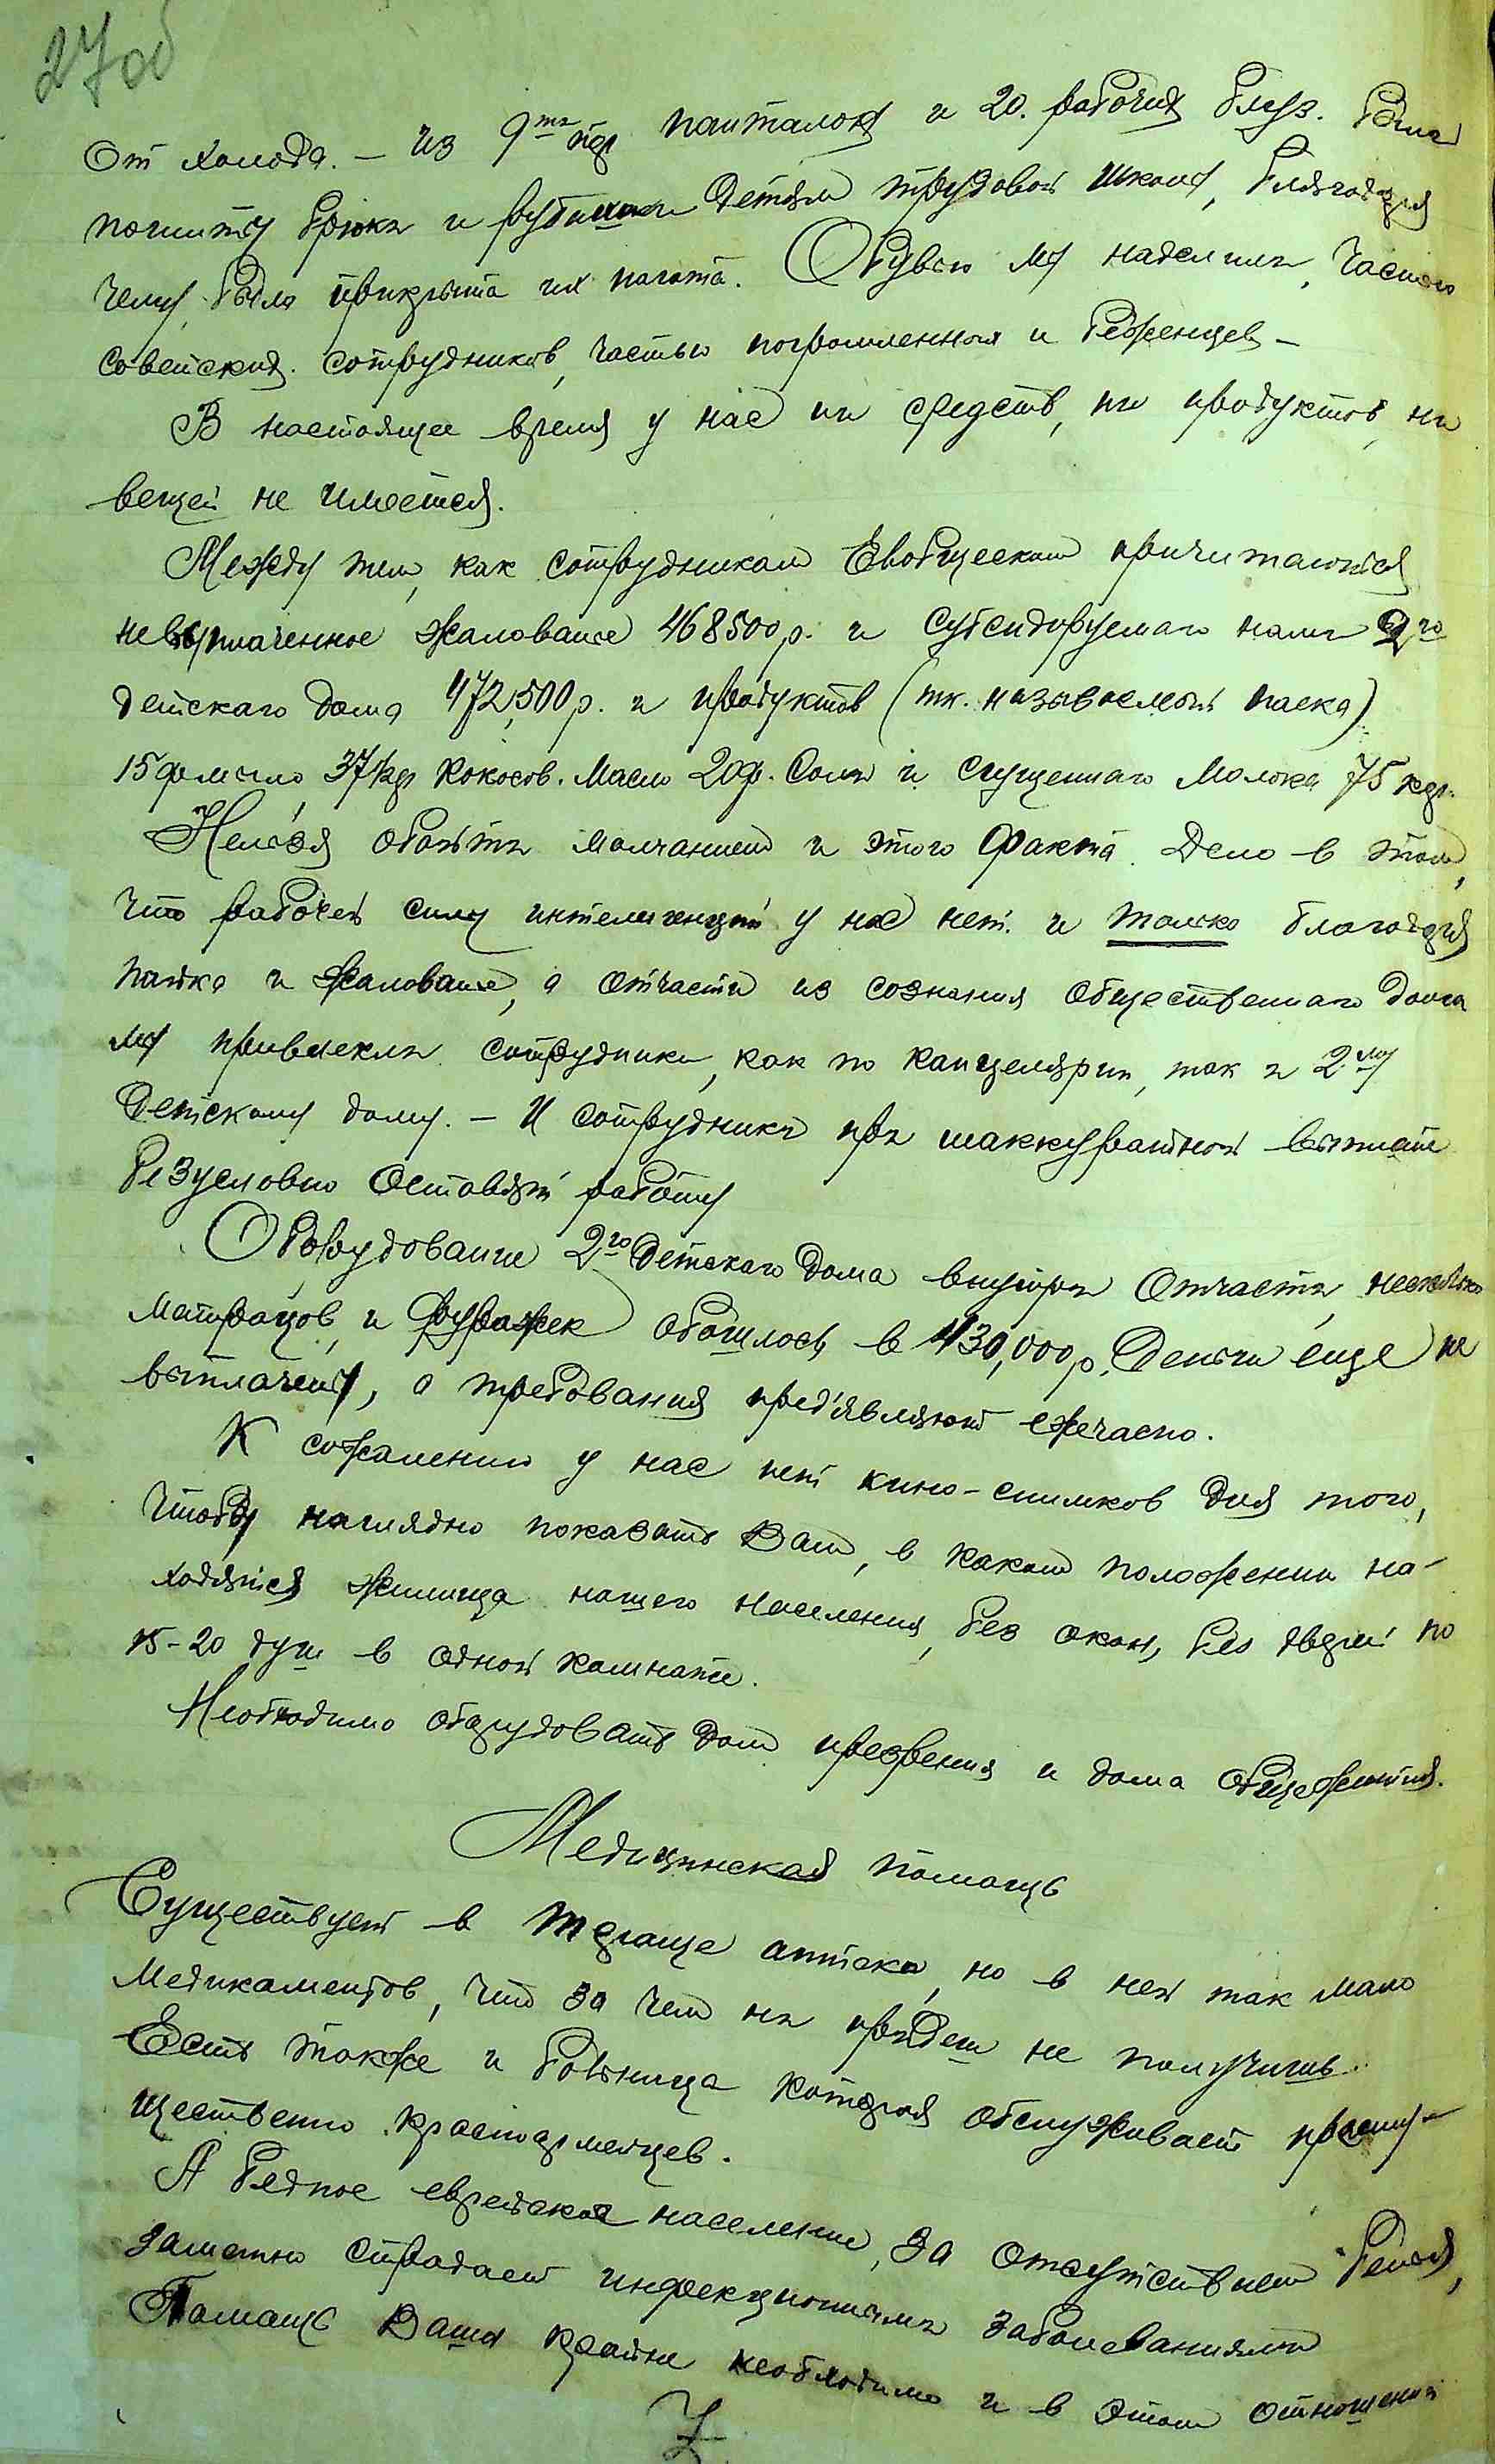 27об
От холода. – Из 9ти пар панталон и 20. рабочих блуз. были
пошиты брюки и рубашки детям трудовой школы, благодаря
чему, была прикрыта их нагота. Обувью мы наделили, частью
советских. сотрудников, частью погромленных и беженцев –
В настоящее время у нас ни средств, ни продуктов, ни
вещей не имеется.
Между тем, как сотрудникам Евобщескома причитаются
невыплаченное жалованье 468500 р. и субсидируемаго нами 2го
детскаго дома 472,500 р. и продуктов (тк. называемый паека)
15 ф мыло, 37 кор кокосов. масло 20 ф. соли и сгущеннаго молока 75 кор.
Нельзя обойти молчанием и этого факта. Дело в том,
что рабочей силы интелигенций у нас нет. и только благодаря
пайка и жалованье, а отчасти из сознания общественнаго долга
мы привлекли сотрудники, как по канцелярии, так и 2му
детскому дому. – И сотрудники при неаккуратной выплате
безусловно оставят работу
Оборудование 2го Детскаго дома внутри отчасти, несколько
матрацов, и фуражек обошлось в 430,000 р. Деньги еще не
выплачены, а требования пред'являют ежечасно.
К сожалению у нас нет кино-снимков для того,
чтобы наглядно показать Вам, в каком положении на-
ходятся жилища нашего населения, без окон, без дверей по
15-20 душ в одной комнате.
Необходимо оборудовать дом презрения и дома общежития.
Медицинская помощь
Существует в аптека, но в ней так мало
медикаментов, что за чем ни придеш не получишь.
Есть также и больница которая обслуживает преиму-
щественно красноармейцев.
А бедное еврейское население, за отсутствием белья,
заметно страдает инфекционными заболеваниями
Помощь Ваша крайне необходимо и в этом отношении